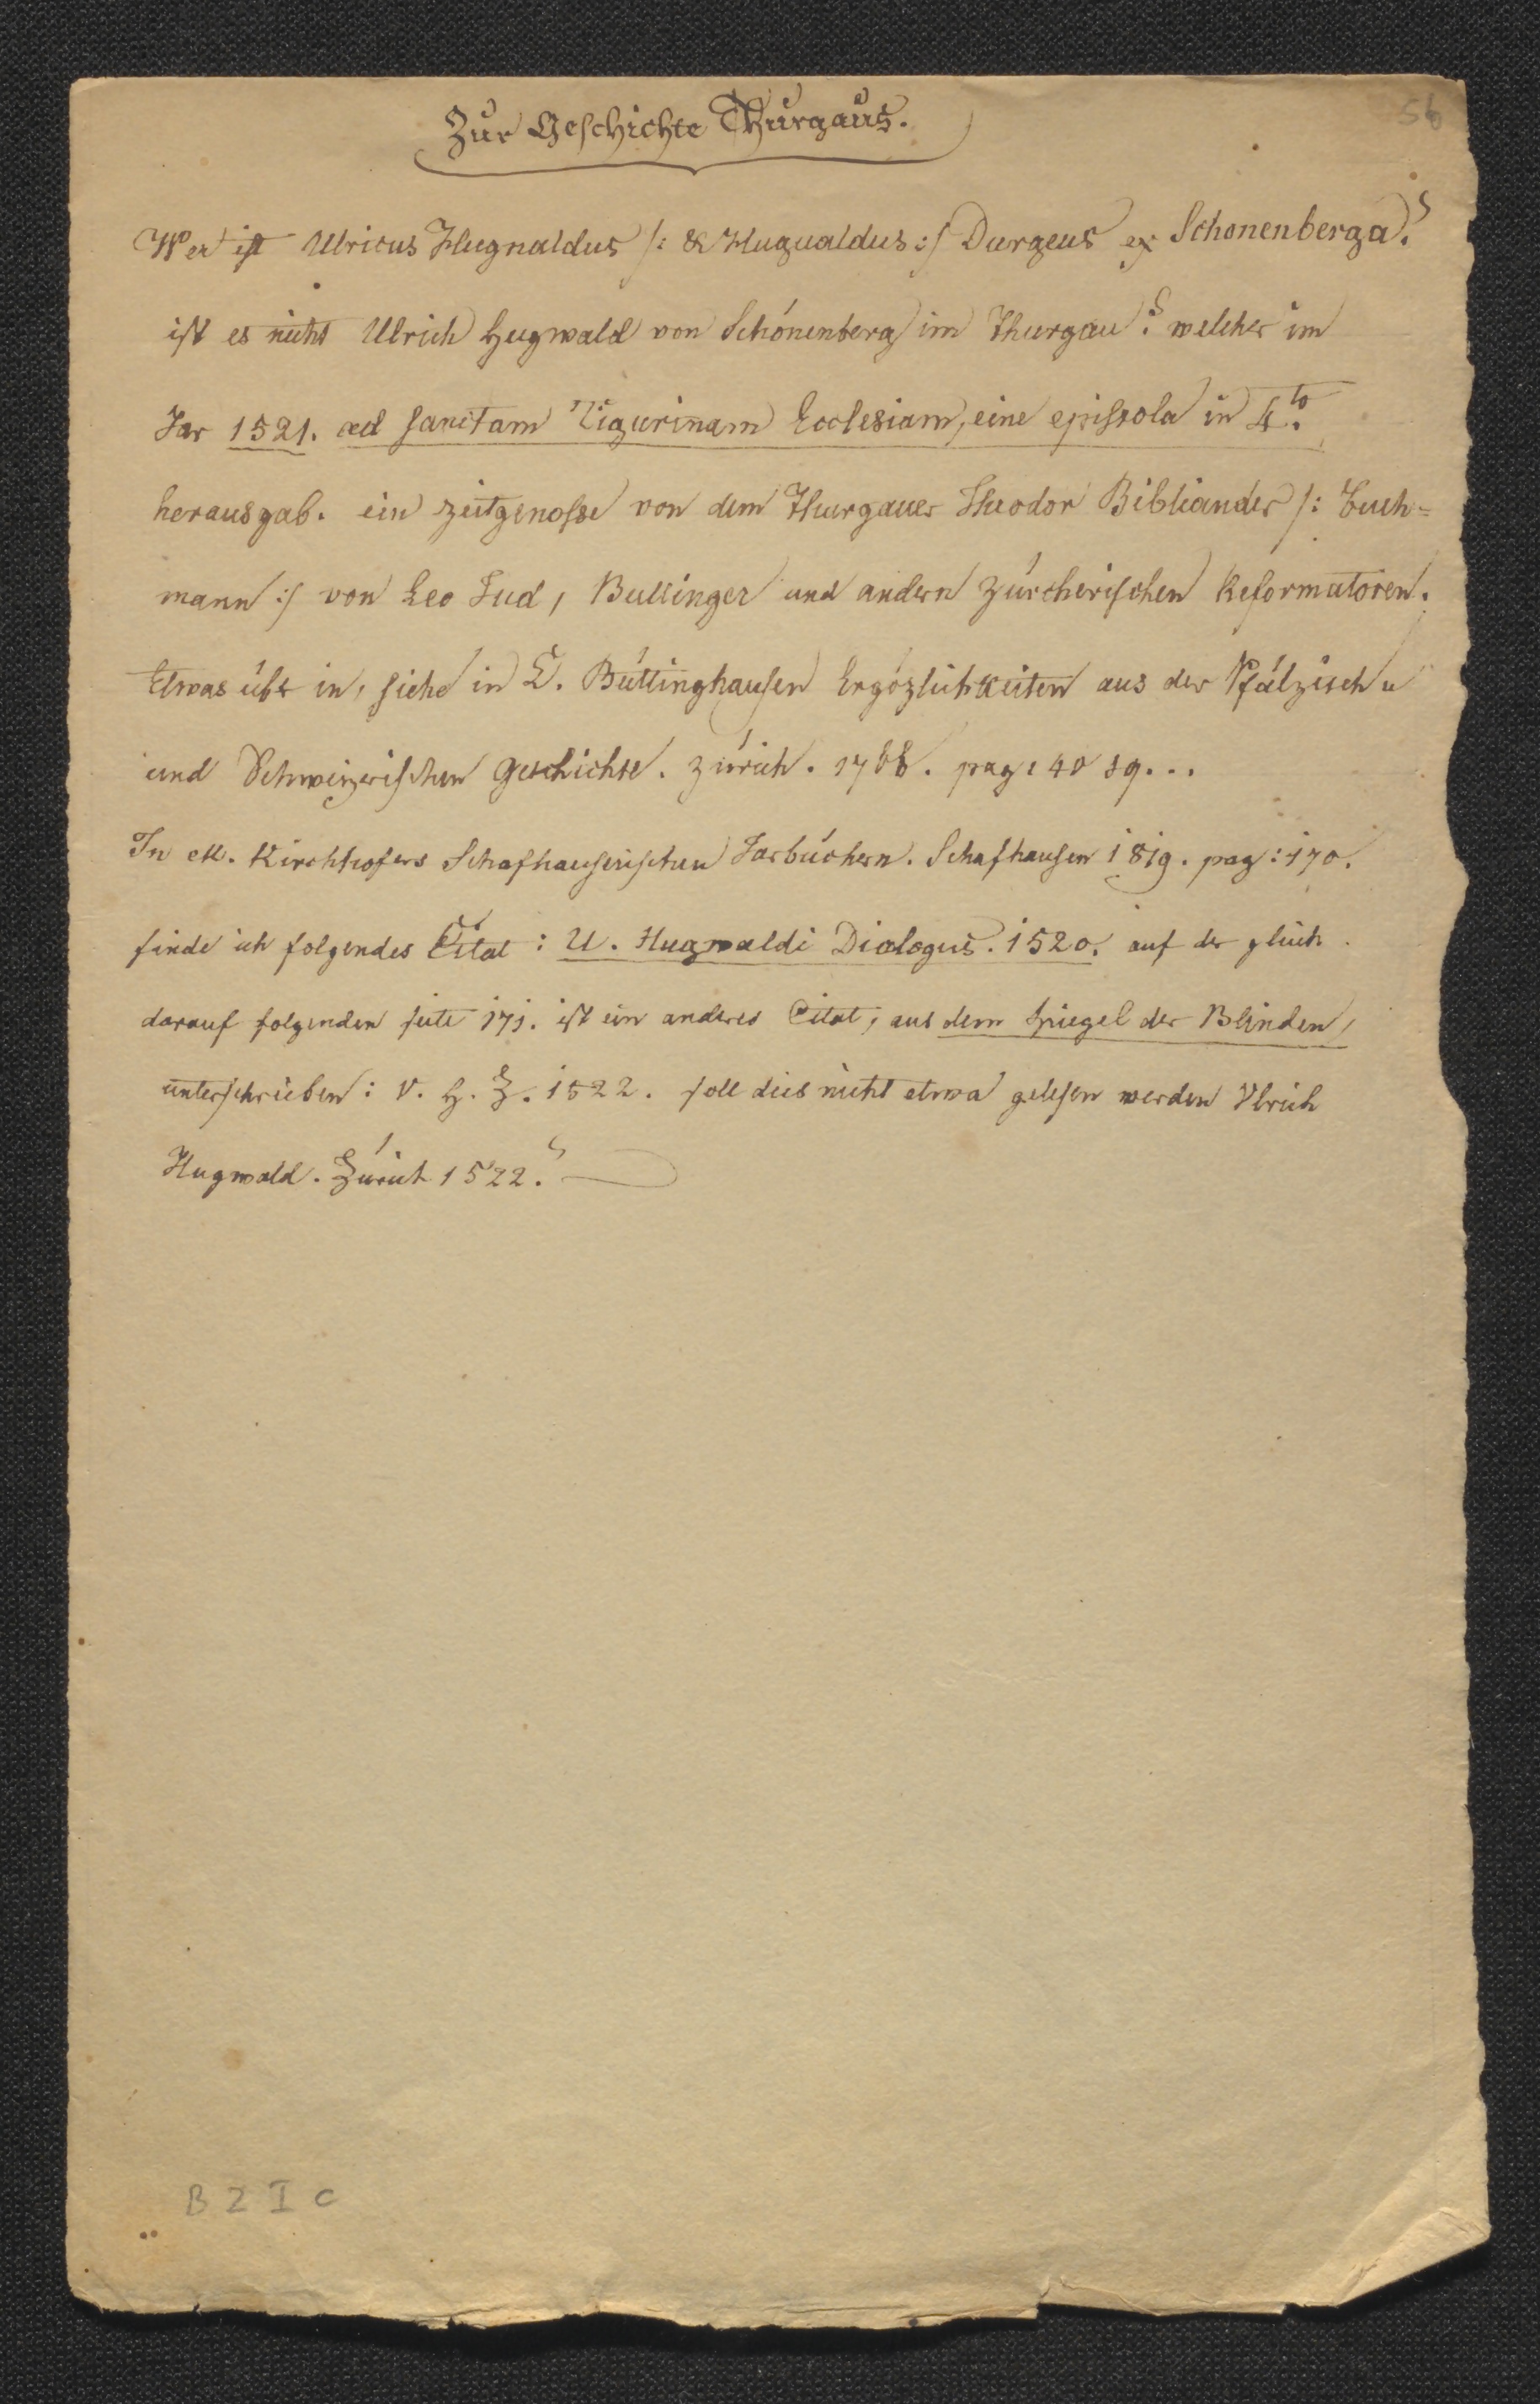 56
Zur Geschichte Thurgaus.
Wer ist Ulricus Hugnaldus /: & Hugualdus :/ Durgeus ex Schonenberga?
ist es nicht Ulrich Hugwald von Schönenberg im Thurgau? welcher im
Jar 1521. ad sanctam Tigurinam Ecclesiam, eine epistola in 4to.
herausgab. ein zeitgenosse von dem Thurgauer Theodor Bibliander /: Buch=
mann :/ von Leo Jud, Bullinger und andern zürcherischen Reformatoren.
Etwas über in, siehe in D. Büttinghausen Ergözlichkeiten aus der Pfälzisch
und Schweizerischen Geschichte. Zürich. 1768. pag: 40 sq...
In M. Kirchhofers Schafhauserischen Jarbüchern. Schafhausen 1819. pag: 170.
finde ich folgendes Citat: U. Hugwaldi Dialogus. 1520. auf der gleich
darauf folgenden seite 171. ist ein anderes Citat, aus dem Spiegel der Blinden,
unterschrieben: V. H. Z. 1522. soll dies nicht etwa gelesen werden Vlrich
Hugwald. Zürich 1522?
B 2 I C